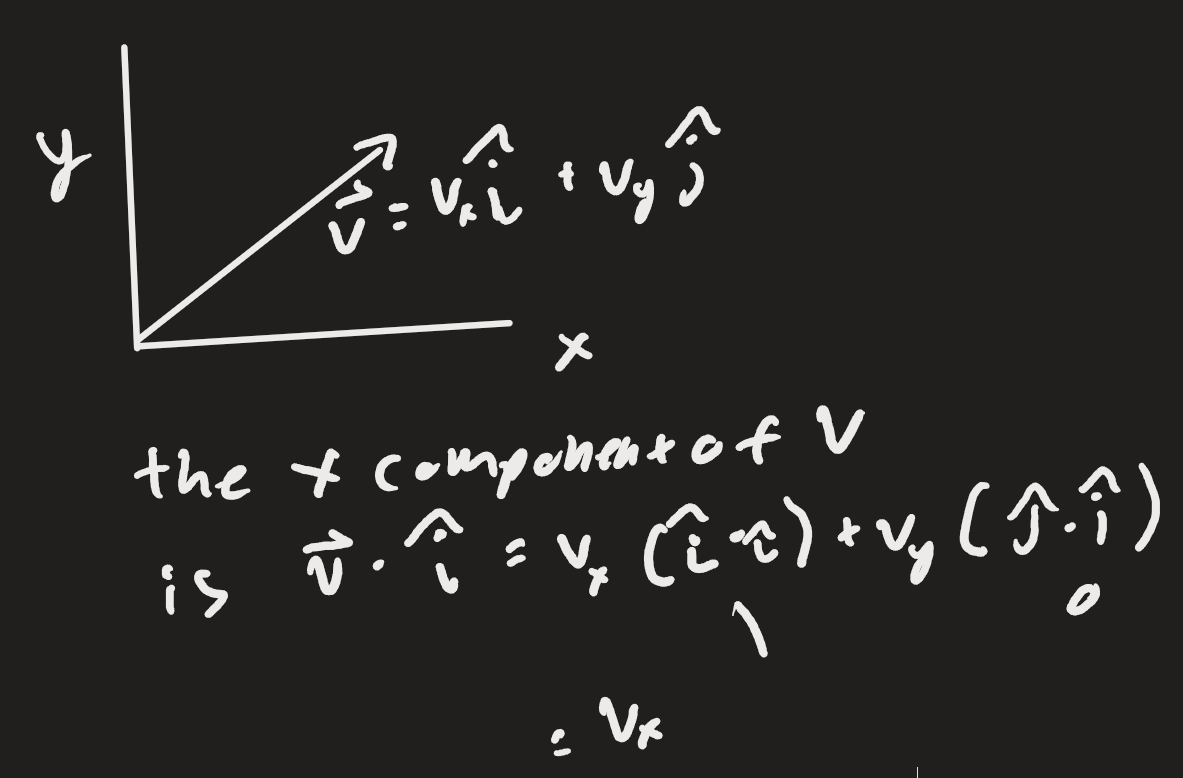 y
v⃗ = vₓ î + v_y ĵ
x
the x component of V
is v⃗ · î = vₓ (î · î) + v_y (ĵ · î)
1 0
= vₓ